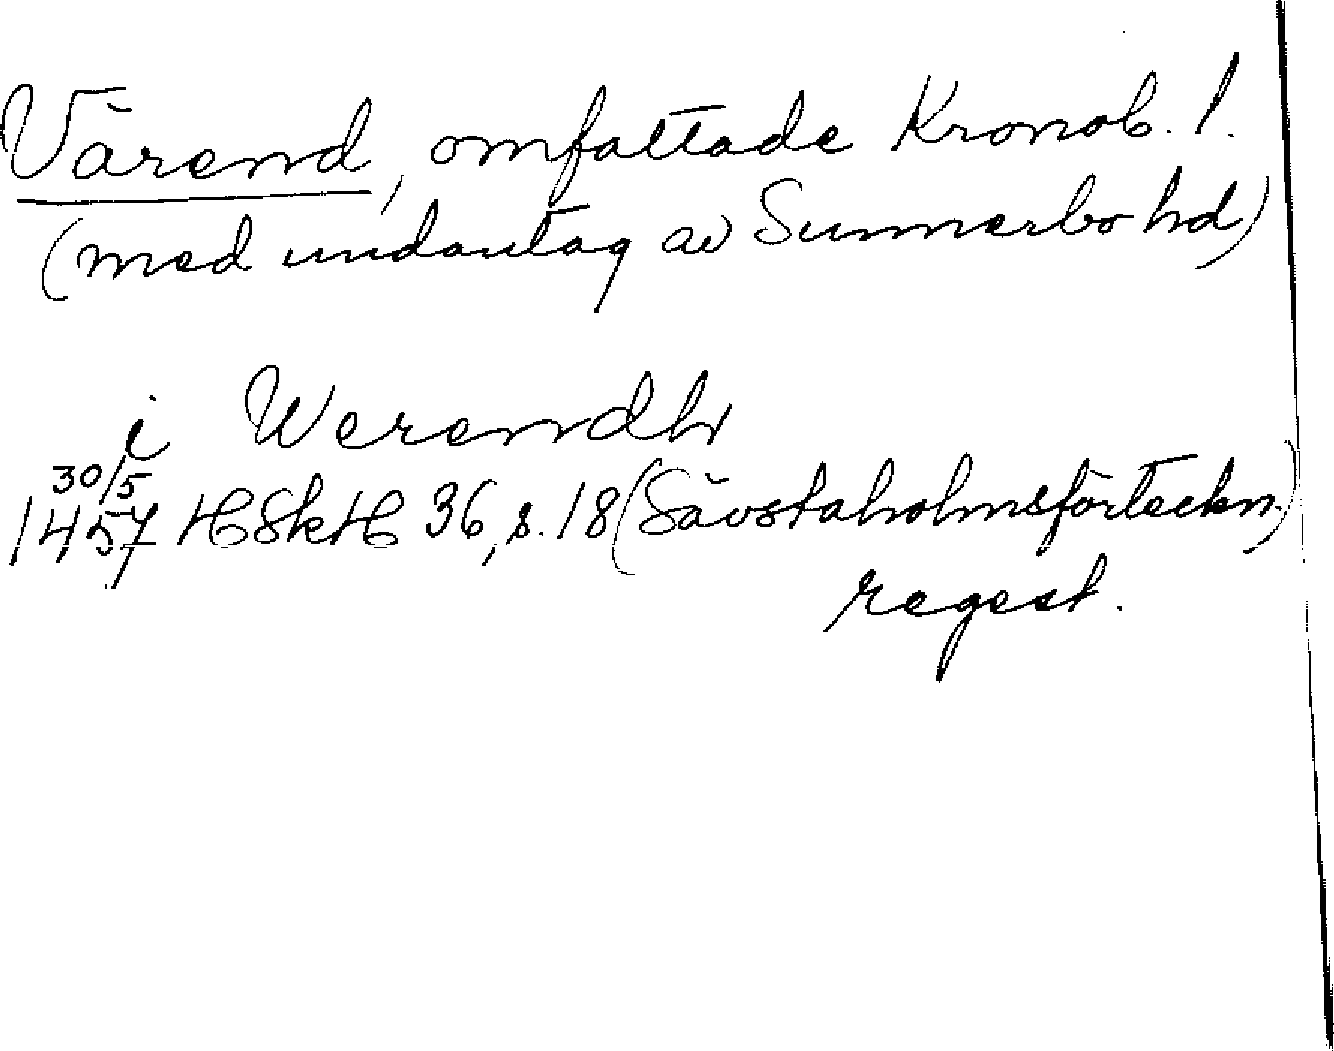 Värend, omfattade Kronob. l.
(med undantag av Sunnerbo hd)
i Werendh
30/5
1457 HSkH 36, s. 18 (Sävstaholmsförteckn.)
regest.